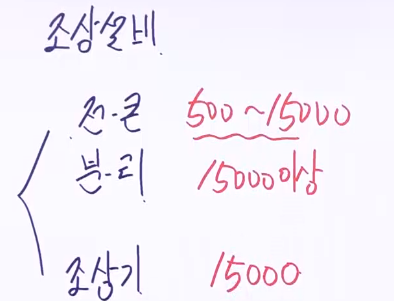 조상설비
전·콘 500~15000
분·리 15000이상
조상기 15000